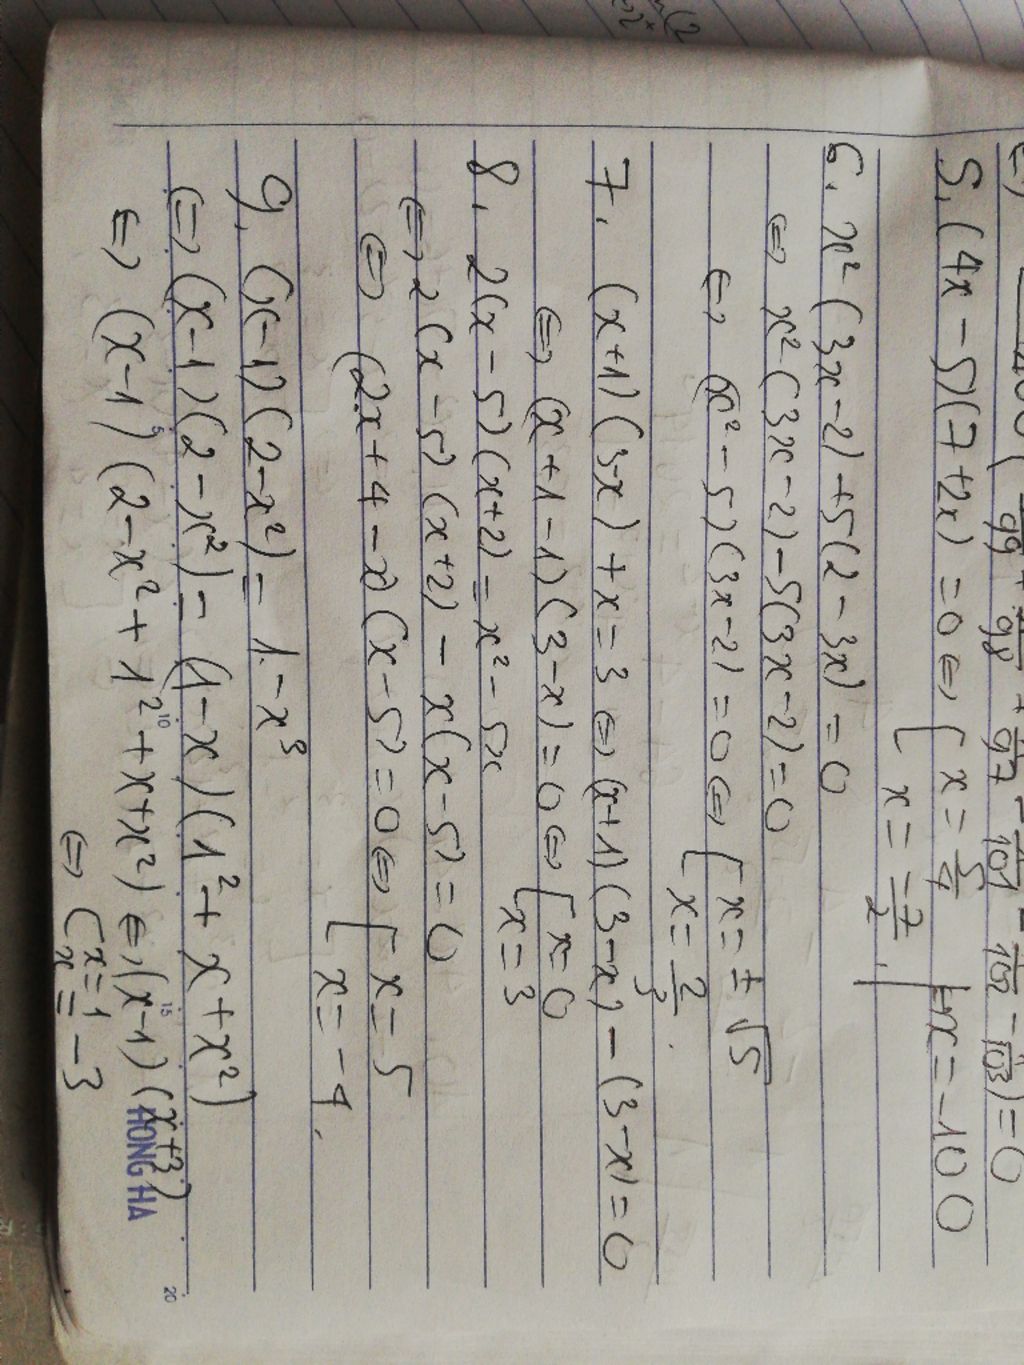 99 + 98 + 97 - 101 - 102 - 103) = 0
5, (4x - 5)(7 + 2x) = 0 ⇔ [ x = 5/4
x = -7/2
x = -100
6, x² (3x - 2) + 5(2 - 3x) = 0
⇔ x² (3x - 2) - 5(3x - 2) = 0
⇔ (x² - 5)(3x - 2) = 0 ⇔ [ x = ±√5
x = 2/3
7, (x+1)(3-x) + x = 3 ⇔ (x+1)(3-x) - (3-x) = 0
⇔ (x + 1 - 1)(3 - x) = 0 ⇔ [ x = 0
x = 3
8, 2(x - 5)(x+2) = x² - 5x
⇔ 2(x - 5)(x+2) - x(x - 5) = 0
⇔ (2x + 4 - x)(x - 5) = 0 ⇔ [ x = 5
x = -4
9, (x-1)(2-x²) = 1 - x³
⇔ (x-1)(2-x²) = (1-x)(1² + x + x²)
⇔ (x-1)(2-x² + 1² + x + x²) ⇔ (x-1)(x+3)
⇔ [ x = 1
x = -3
HONG HA
5 10 15 20